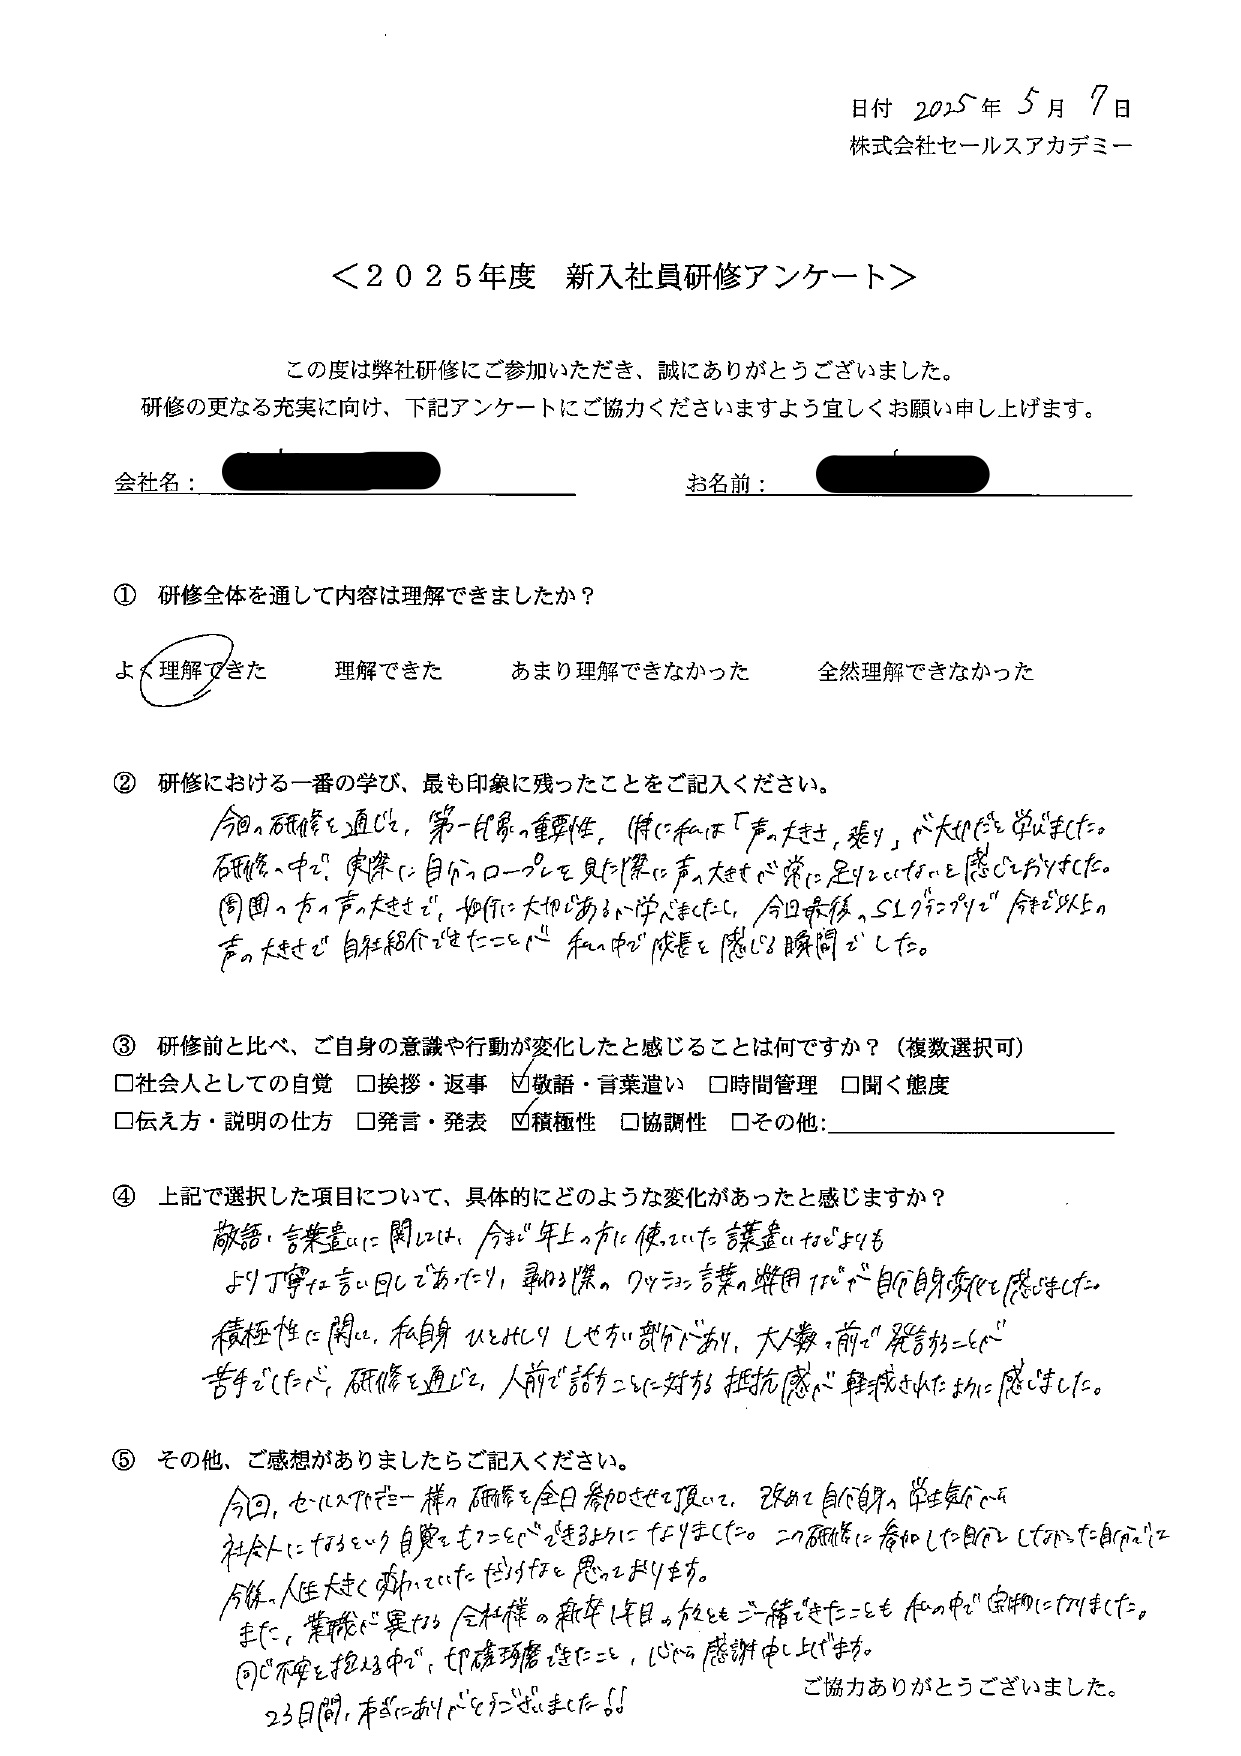 日付 2025年 5月 7日
株式会社セールスアカデミー
＜２０２５年度　新入社員研修アンケート＞
この度は弊社研修にご参加いただき、誠にありがとうございました。
研修の更なる充実に向け、下記アンケートにご協力くださいますよう宜しくお願い申し上げます。
会社名： お名前：
① 研修全体を通して内容は理解できましたか？
よく理解できた 理解できた あまり理解できなかった 全然理解できなかった
② 研修における一番の学び、最も印象に残ったことをご記入ください。
今回の研修を通じて、第一印象の重要性、特に私は「声の大きさ、張り」が大切だと学びました。
研修の中で、実際に自分のロープレを見た際に声の大きさが常に足りていないと感じておりました。
周囲の方の声の大きさで、如何に大切であるか学べましたし、今日最後のS1グランプリで今まで以上の
声の大きさで自社紹介できたことが私の中で成長を感じる瞬間でした。
③ 研修前と比べ、ご自身の意識や行動が変化したと感じることは何ですか？（複数選択可）
□社会人としての自覚 □挨拶・返事 ☑敬語・言葉遣い □時間管理 □聞く態度
□伝え方・説明の仕方 □発言・発表 ☑積極性 □協調性 □その他:
④ 上記で選択した項目について、具体的にどのような変化があったと感じますか？
敬語・言葉遣いに関しては、今まで年上の方に使っていた言葉遣いなどよりも
より丁寧な言い回しであったり、尋ねる際のクッション言葉の併用などが自分自身変化を感じました。
積極性に関して、私自身ひとみしりしやすい部分があり、大人数の前で発言することが
苦手でしたが、研修を通じて、人前で話すことに対する抵抗感が軽減されたように感じました。
⑤ その他、ご感想がありましたらご記入ください。
今回、セールスアカデミー様の研修を全日参加させて頂いて、改めて自分自身の学生気分から
社会人になるという自覚をもつことができるようになりました。この研修に参加した自分としなかった自分とで
今後の人生大きく変わっていただろうなと思っております。
また、業職が異なる会社様の新卒1年目の方々ともご一緒できたことも私の中で宝物になりました。
同じ不安を抱える中で、切磋琢磨できたこと、心から感謝申し上げます。
23日間、本当にありがとうございました!!
ご協力ありがとうございました。